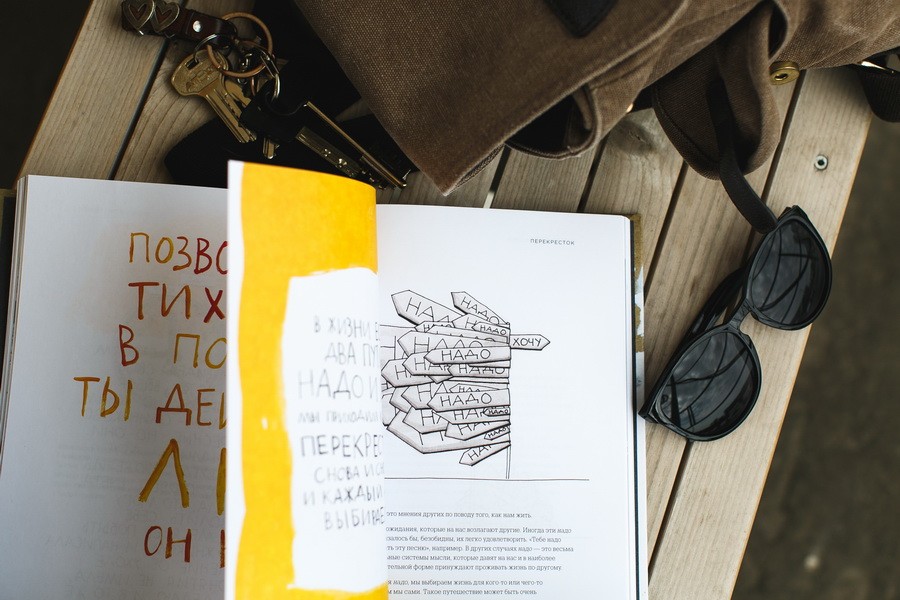 ПОЗВО
ТИХ
В ПО
ТЫ ДЕ
ОН
В ЖИЗНИ
ДВА ПУ
НАДО И
МЫ ПРИХОДИМ
ПЕРЕКРЕС
СНОВА И
И КАЖДЫЙ
ВЫБИРАЕ
ПЕРЕКРЕСТОК
НАДО
НАДО
НАДО
ХОЧУ
НАДО
НАДО
НАДО
НАДО
НАДО
это мнения других по поводу того, как нам жить.
ожидания, которые на нас возлагают другие. Иногда эти надо
залось бы, безобидны, их легко удовлетворить. «Тебе надо
ть эту песню», например. В других случаях надо — это весьма
ные системы мысли, которые давят на нас и в наиболее
тельной форме принуждают проживать жизнь по-другому.
м надо, мы выбираем жизнь для кого-то или чего-то
м мы сами. Такое путешествие может быть очень